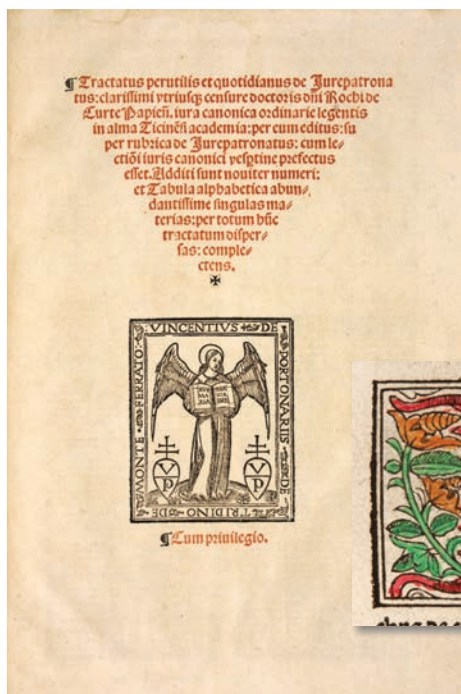 ¶ Tractatus perutilis et quotidianus de Jurepatrona
tus: clarissimi vtriusq; censure doctoris dñi Rochi de
Curte Papieñ. iura canonica ordinarie legentis
in alma Ticineñ academia: per eum editus: su
per rubrica de Jurepatronatus: cum le-
ctiōi iuris canonici vesptine prefectus
esset. Additi sunt nouiter numeri:
et Tabula alphabetica abun-
dantissime singulas ma-
terias: per totum hūc
tractatum disper-
sas: comple-
ctens.
✠
VINCENTIVS · DE ·
PORTONARIIS · DE
TRIDINO · DE
MONTE · FERRATO
V P
V P
¶ Cum priuilegio.